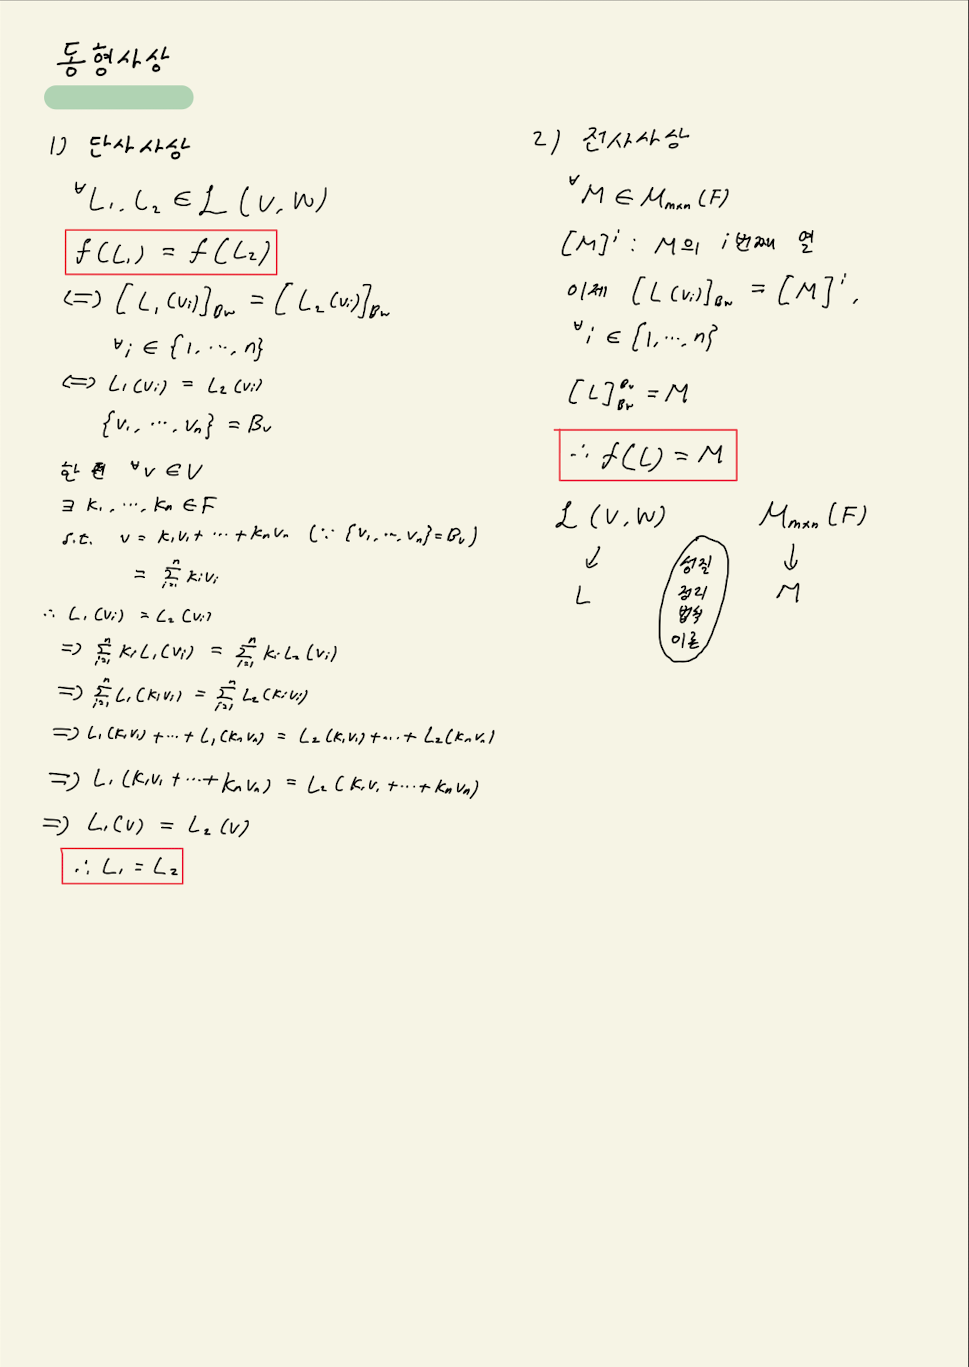 동형사상
1) 단사사상
∀L₁, L₂ ∈ ℒ(V, W)
f(L₁) = f(L₂)
⟺ [L₁(vᵢ)]_Bw = [L₂(vᵢ)]_Bw
∀i ∈ {1, ⋯, n}
⟺ L₁(vᵢ) = L₂(vᵢ)
{v₁, ⋯, vₙ} = Bᵥ
한편 ∀v ∈ V
∃ k₁, ⋯, kₙ ∈ F
s.t. v = k₁v₁ + ⋯ + kₙvₙ (∵ {v₁, ⋯, vₙ} = Bᵥ)
= Σⁿᵢ₌₁ kᵢvᵢ
∴ L₁(vᵢ) = L₂(vᵢ)
⟹ Σⁿᵢ₌₁ kᵢL₁(vᵢ) = Σⁿᵢ₌₁ kᵢL₂(vᵢ)
⟹ Σⁿᵢ₌₁ L₁(kᵢvᵢ) = Σⁿᵢ₌₁ L₂(kᵢvᵢ)
⟹ L₁(k₁v₁) + ⋯ + L₁(kₙvₙ) = L₂(k₁v₁) + ⋯ + L₂(kₙvₙ)
⟹ L₁(k₁v₁ + ⋯ + kₙvₙ) = L₂(k₁v₁ + ⋯ + kₙvₙ)
⟹ L₁(v) = L₂(v)
∴ L₁ = L₂
2) 전사사상
∀M ∈ M_m×n(F)
[M]ⁱ : M의 i번째 열
이제 [L(vᵢ)]_Bw = [M]ⁱ,
∀i ∈ {1, ⋯, n}
[L]^Bv_Bw = M
∴ f(L) = M
ℒ(V, W) M_m×n(F)
↓ ↓
L M
성질
정리
법칙
이론